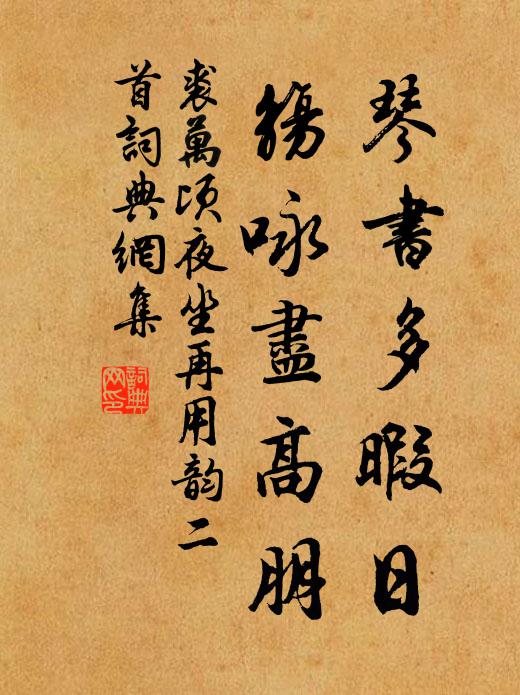 琴書多暇日
觴咏盡高朋
裘萬頃夜坐再用韵二
首詞典網集
詞典網印